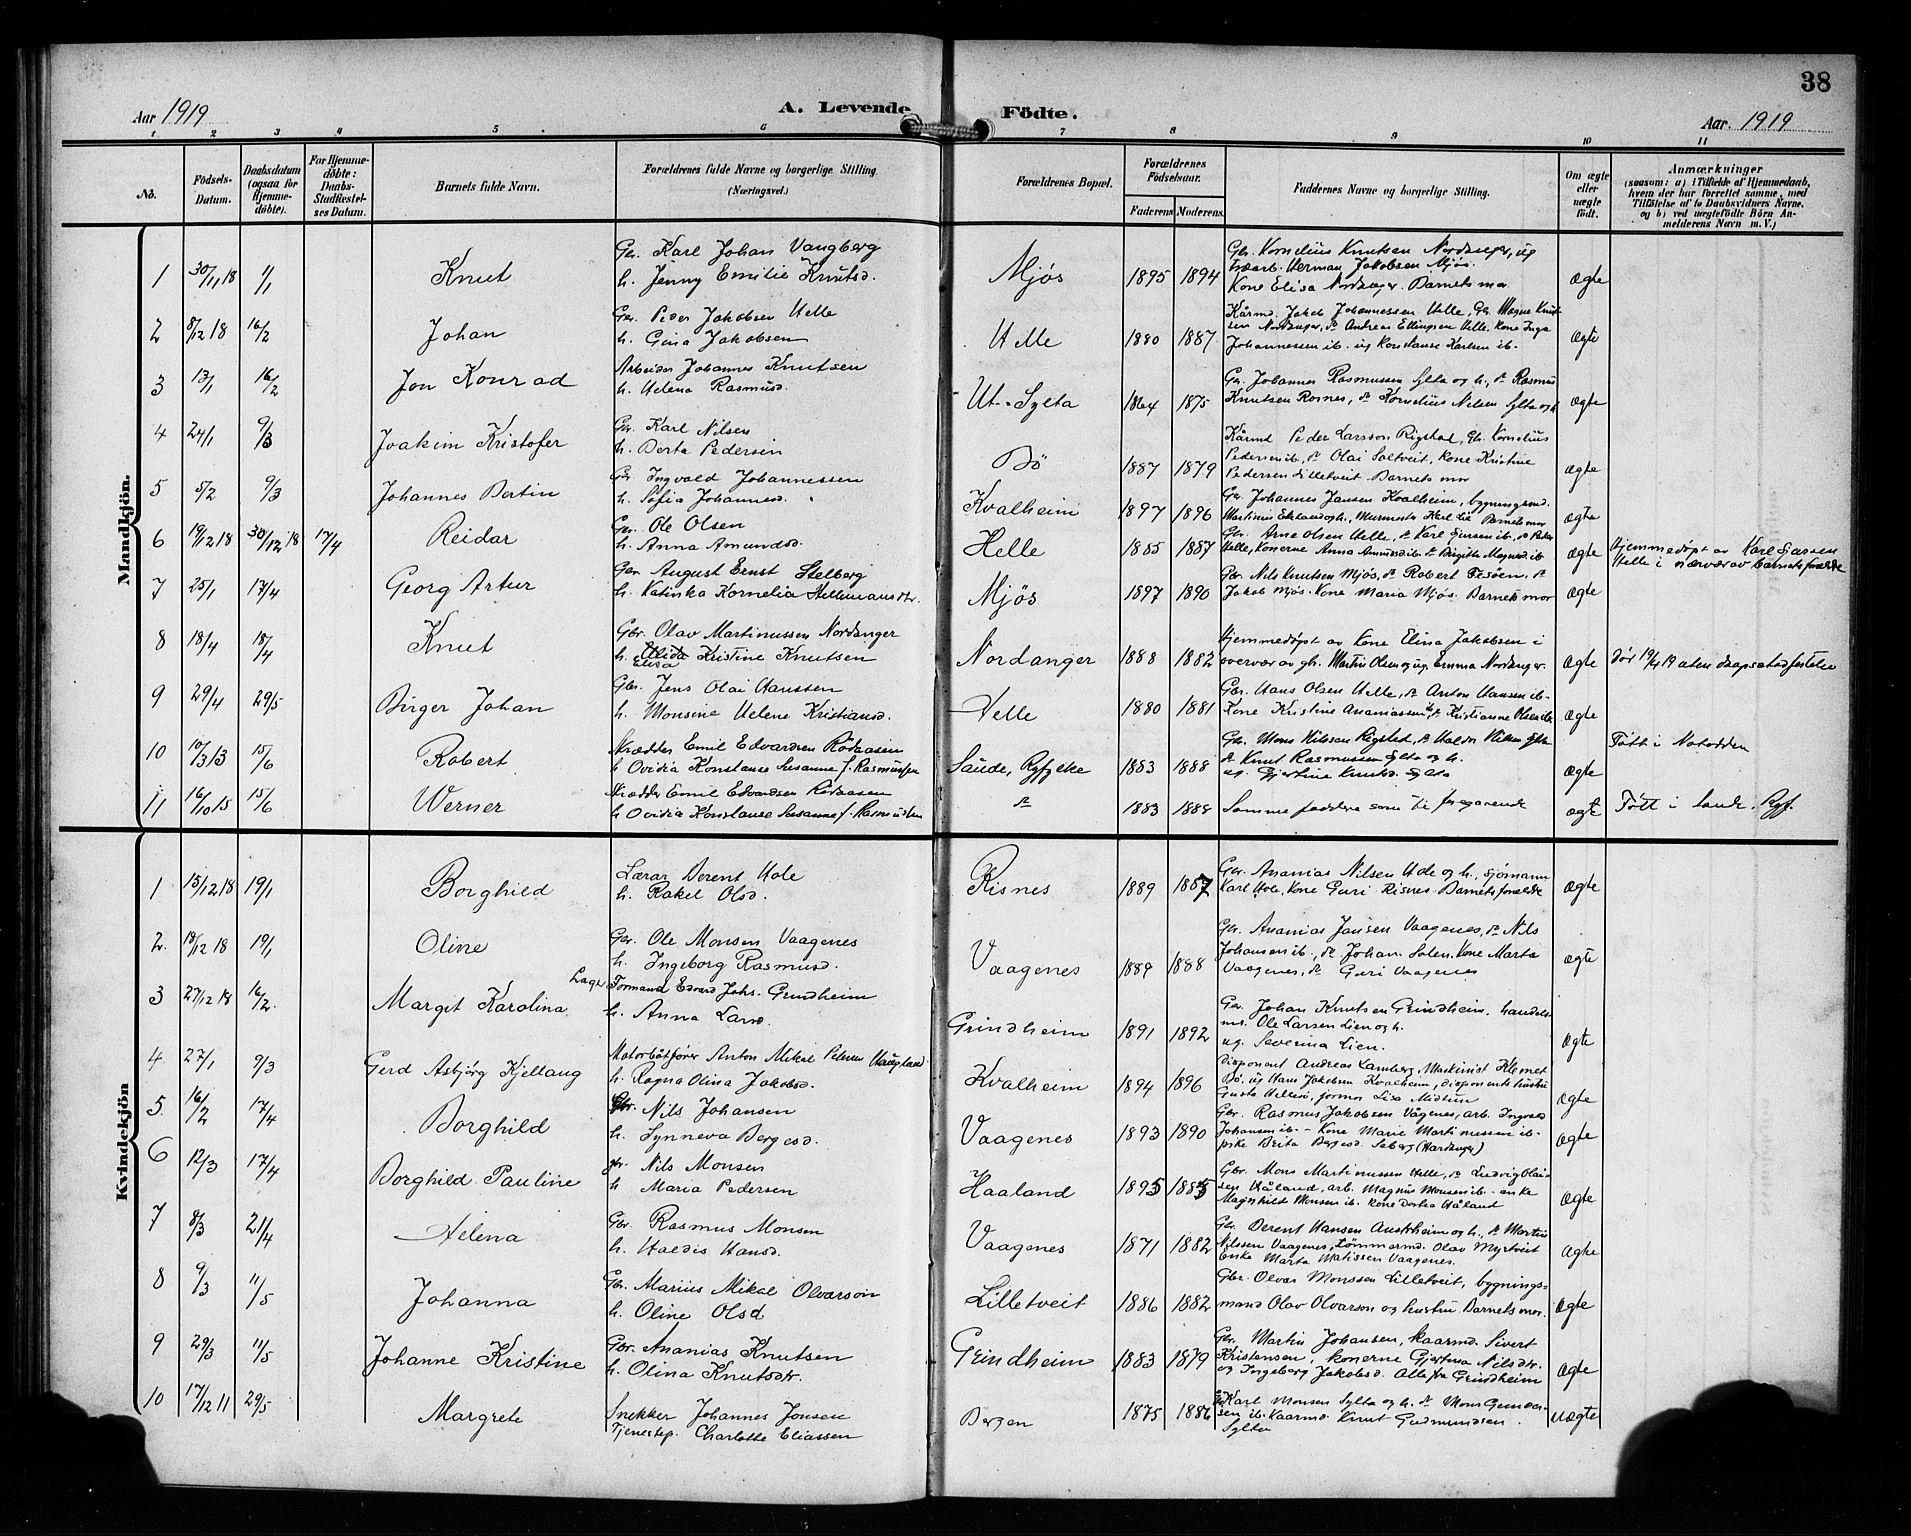 38
Aar 1919
A. Levende Födte.
Aar. 1919
1 2 3 4 5 6 7 8 9 10 11
No.
Födsels-Datum.
Daabsdatum (ogsaa for Hjemmedöbte).
For Hjemmedöbte: Daabs-Stadfæstelses Datum.
Barnets fulde Navn.
Forældrenes fulde Navne og borgerlige Stilling. (Næringsvei.)
Forældrenes Bopæl.
Forældrenes Födselsaar.
Faderens. Moderens.
Faddernes Navne og borgerlige Stilling.
Om ægte eller uægte födt.
Anmærkninger
(saasom: a) i Tilfælde af Hjemmedaab, hvem der har forrettet samme, med Tilföielse af to Daabsvidners Navne, og b) ved uægtefödte Börn Anmelderens Navn m. V.)
Mandkjön.
1 30/11 18 1/1 Knut Gr. Karl Johan Vangberg h. Jenny Emilie Knutsd. Mjøs 1895 1894 Gr. Kornelius Knutsen Nordanger, ug Herman Jakobsen Mjøs. Kone Elisa Nordanger. Barnets mor ægte
2 8/12 18 16/2 Johan Gr. Peder Jakobsen Helle h. Gina Jakobsen Helle 1880 1887 Kårmd. Jakob Johannessen Helle, Gr. Magne Knutsen Nordanger, do Andreas Ellingsen Helle, Kone Inga Johannessen ib. ug Konstanse Karlsen ib. ægte
3 13/1 16/2 Jon Konrad Arbeider Johannes Knutsen h. Helena Rasmusd. Ut-Sylta 1864 1875 Gr. Johannes Rasmussen Sylta og h., do Rasmus Knutsen Rosnes, do Kornelius Nilsen Sylta og h. ægte
4 24/1 9/3 Joakim Kristofer Gr. Karl Nilsen h. Berta Pedersen Bö 1887 1879 Kårmd Peder Larsson Rigstad, Gr. Kornelius Pedersen ib., do Olai Soltveit, Kone Kristine Pedersen Lilletveit Barnets mor ægte
5 5/2 9/3 Johannes Bertin Gr. Ingvald Johannessen h. Sofia Johannesd. Kvalheim 1897 1896 Gr. Johannes Jansen Kvalheim, bygningsmd. Martinus og h., Karl Lie Barnets mor ægte
6 19/12 18 30/12 18 17/4 Reidar Gr. Ole Olsen h. Anna Amundsd. Helle 1885 1887 Gr. Arne Olsen Helle, do Karl ib., do Peder Helle, Konerne Anna Amundsd ib. do Birgitta Magnusd ib ægte Hjemmedøpt av Karl Helle i nærvær av barnets forældre
7 25/1 17/4 Georg Artur Gbr August Ernst Stelberg h. Katinka Kornelia Hellemansdtr. Mjøs 1897 1890 Gbr. Nils Knutsen Mjøs, do Robert Fesöen, do Jakob Mjøs. Kone Maria Mjøs. Barnets mor ægte
8 18/4 18/4 Knut Gbr. Olav Martinussen Nordanger h. Elisa Kristine Knutsen Nordanger 1888 1882 Hjemmedøpt av Kone Elina Jakobsen i overvær av gbr. Martin Olsen og ug. Emma Nordanger. ægte dør 19/4 19 uten daapsstadfestelse
9 29/4 29/5 Birger Johan Gbr. Jens Olai Hanssen h. Monsine Helene Kristiansd. Helle 1880 1881 Gbr. Hans Olsen Helle, do Anton Hansen ib. Kone Kristine Ananiassen ib, do Kristianne Olsen ib. ægte
10 10/3 13 15/6 Robert Skrædder Emil Edvardsen Rödaasen h Ovidia Konstanse Susanne f. Rasmussen Saude, Ryfylke 1883 1888 Gbr. Mons Nilsson Rigstad, do Haldor Nilsen Sylta do Knut Rasmussen Sylta og h. ug. Gjertine Knutsd. Sylta ægte Født i Notodden
11 16/10 15 15/6 Werner Skrædder Emil Edvardsen Rödaasen h Ovidia Konstanse Susanne f. Rasmussen do 1883 1888 Samme faddere som til foregaaende ægte Født i Saude. Ryf.
Kvindekjön
1 15/12 18 19/1 Borghild Lærar Berent Hole h. Rakel Olsd. Risnes 1889 1887 Gr. Ananias Nilsen Hole og h., sjömann Karl Hole, Kone Guri Risnes. Barnets forældre ægte
2 18/12 18 19/1 Oline Gr. Ole Monsen Vaagenes h. Ingeborg Rasmusd. Vaagenes 1889 1888 Gr. Ananias Jansen Vaagenes, do Nils Johansen ib., do Johan Solem. Kone Marta Vaagenes, do Guri Vaagenes ægte
3 27/12 18 16/2 Margit Karolina Lagr Formand Edvard Johs. Grindheim h. Anna Larsd. Grindheim 1891 1892 Gr. Johan Knutsen Grindheim. handelsmd. Ole Larsen Lien og h. ug. Severina Lien. ægte
4 27/1 9/3 Gerd Asbjörg Kjellaug Motorbåtfører Anton Mikal Petersen Haugland h. Ragna Olina Jakobsd. Kvalheim 1894 1896 Disponent Andreas Lamberg, Maskinist Klemet Bö, ug Hans Jakobsen Kvalheim, disponents hustru Gusta, Lisa Midtun ægte
5 16/2 17/4 Borghild Gbr. Nils Johansen h. Synneva Bergesd. Vaagenes 1893 1890 Gbr. Rasmus Jakobsen Vågenes, arb. Ingvald Johansen ib. - Kone Marie Martinussen ib - pike Brita Bergesd. Seberg (Hardanger) ægte
6 12/3 17/4 Borghild Pauline gbr. Nils Monsen h Maria Pedersen Haaland 1895 1885 Gbr. Mons Martinussen Helle, do Ludvig Olaisen Håland, arb. Magnus Monsen ib - enke Magnhild Monsen ib. Kone Dortea Håland ægte
7 8/3 21/4 Helena Gbr. Rasmus Monsen h. Haldis Hansd. Vaagenes 1871 1882 Gbr. Berent Hansen Austrheim og h., do Martin Nilssen Vaagenes, Tømmermd. Olav Myrtveit Enke Marta Matissen Vaagenes. ægte
8 9/3 11/5 Johanna Gbr. Marius Mikal Olvarson h. Oline Olsd Lilletveit 1886 1882 Gbr. Olvar Monssen Lilletveit, bygningsmand Olav Olvarson og hustru Barnets mor. ægte
9 29/3 11/5 Johanne Kristine Gbr. Ananias Knutsen h. Olina Knutsdtr. Grindheim 1883 1879 Gbr. Martin Johansen, kaarmd. Sivert Kristensen, konerne Gjertina Nilsdtr. og Ingeborg Jakobsd. Alle fra Grindheim ægte
10 17/12 11 29/5 Margrete Snekker Johannes Jonsen Tjenestep. Charlotte Eliassen Bergen 1875 1886 Gbr Karl Monsen Sylta og h. do Mons Gunnarsen ib. Kaarmd Knut Gudmundsen Sylta uægte